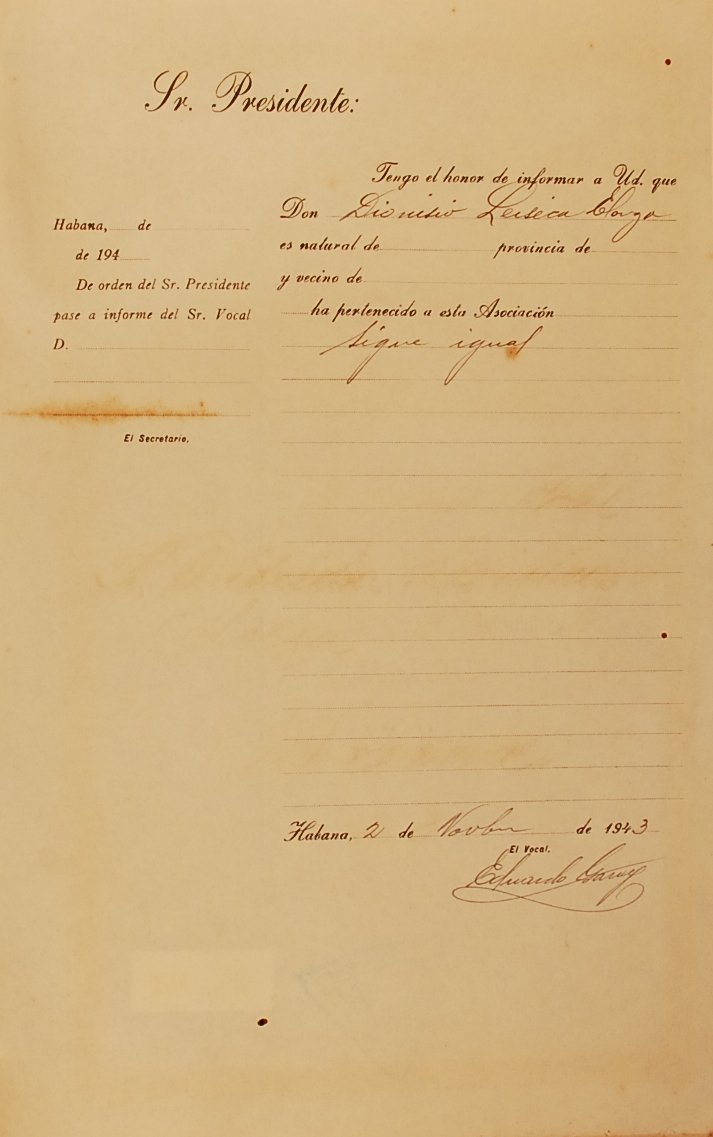 Sr. Presidente:
Tengo el honor de informar a Ud. que
Don Dionisio Leiseca
es natural de provincia de
y vecino de
ha pertenecido a esta Asociación
Sigue igual
Habana, de
de 194
De orden del Sr. Presidente
pase a informe del Sr. Vocal
D.
El Secretario.
Habana, 2 de Novbre de 1943
El Vocal,
Eduardo